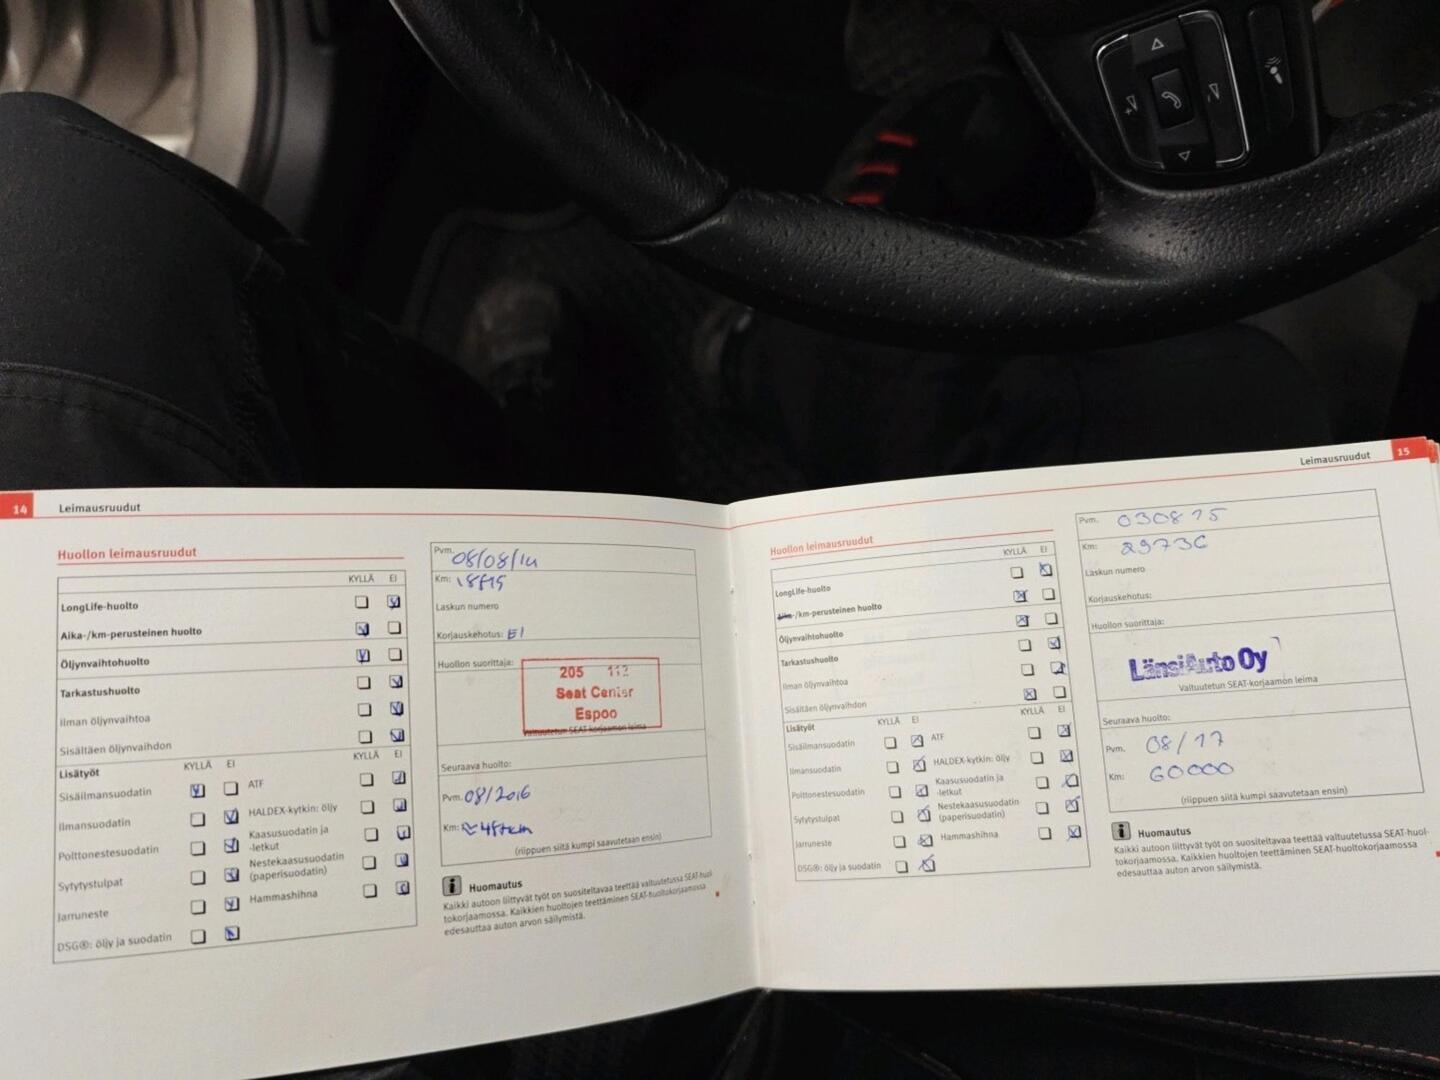 14
Leimausruudut
Huollon leimausruudut
KYLLÄ EI
LongLife-huolto
Aika-/km-perusteinen huolto
Öljynvaihtohuolto
Tarkastushuolto
Ilman öljynvaihtoa
Sisältäen öljynvaihdon
Lisätyöt KYLLÄ EI KYLLÄ EI
Sisäilmansuodatin ATF
Ilmansuodatin HALDEX-kytkin: öljy
Polttonestesuodatin Kaasusuodatin ja
-letkut
Sytytystulpat Nestekaasusuodatin
(paperisuodatin)
Jarruneste Hammashihna
DSG®: öljy ja suodatin
Pvm. 08/08/14
Km:
Laskun numero
Korjauskehotus: EI
Huollon suorittaja:
205 112
Seat Center
Espoo
Valtuutetun SEAT-korjaamon leima
Seuraava huolto:
Pvm. 08/2016
Km:
(riippuen siitä kumpi saavutetaan ensin)
i Huomautus
Kaikki autoon liittyvät työt on suositeltavaa teettää valtuutetussa SEAT-huol-
tokorjaamossa. Kaikkien huoltojen teettäminen SEAT-huoltokorjaamossa
edesauttaa auton arvon säilymistä.
Leimausruudut
15
Huollon leimausruudut
KYLLÄ EI
LongLife-huolto
Aika-/km-perusteinen huolto
Öljynvaihtohuolto
Tarkastushuolto
Ilman öljynvaihtoa
Sisältäen öljynvaihdon
Lisätyöt KYLLÄ EI KYLLÄ EI
Sisäilmansuodatin ATF
Ilmansuodatin HALDEX-kytkin: öljy
Polttonestesuodatin Kaasusuodatin ja
-letkut
Sytytystulpat Nestekaasusuodatin
(paperisuodatin)
Jarruneste Hammashihna
DSG®: öljy ja suodatin
Pvm. 030815
Km: 29736
Laskun numero
Korjauskehotus:
Huollon suorittaja:
LänsiAuto Oy
Valtuutetun SEAT-korjaamon leima
Seuraava huolto:
Pvm. 08/17
Km: 60000
(riippuen siitä kumpi saavutetaan ensin)
i Huomautus
Kaikki autoon liittyvät työt on suositeltavaa teettää valtuutetussa SEAT-huol-
tokorjaamossa. Kaikkien huoltojen teettäminen SEAT-huoltokorjaamossa
edesauttaa auton arvon säilymistä.